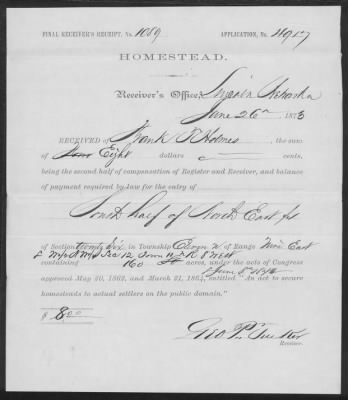 FINAL RECEIVER'S RECEIPT, No. 1089
APPLICATION, No. 4917
HOMESTEAD.
Receiver's Office, Lincoln Nebraska
June 26th 1873
RECEIVED of Frank Holmes, the sum
of Four Eight dollars cents,
being the second half of compensation of Register and Receiver, and balance
of payment required by law for the entry of
South half of North East fr
of Section Twenty Six in Township Eleven N of Range Nine East
12 Town 11 R 8 West
containing 160 acres, under the acts of Congress
approved May 20, 1862, and March 21, 1864, entitled "An act to secure
June 8
homesteads to actual settlers on the public domain."
$ 8.00
Geo. P. Tucker
Receiver.